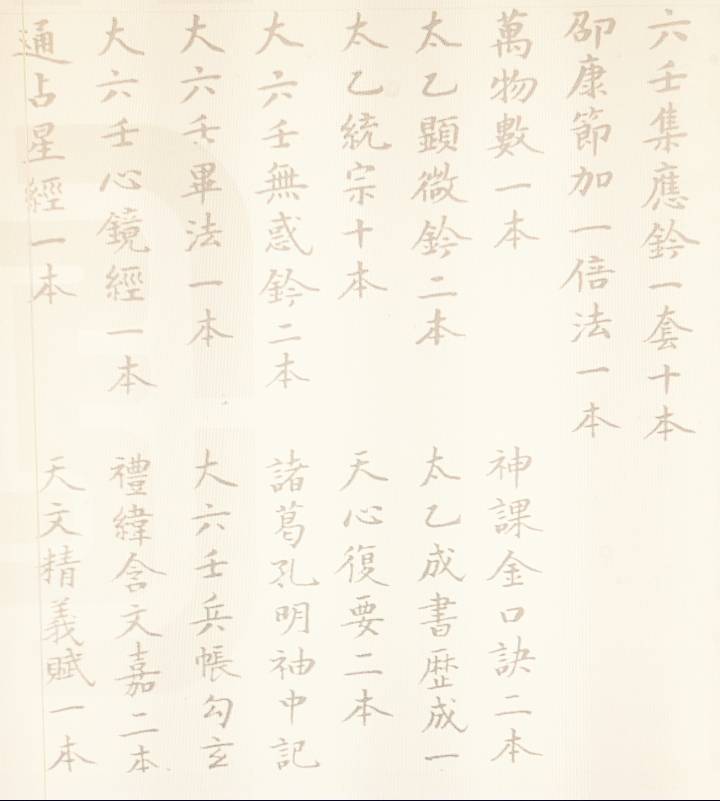 六壬集應鈐一套十本
邵康節加一倍法一本
萬物數一本 神課金口訣二本
太乙顯微鈐二本 太乙成書歷成一
太乙統宗十本 天心復要二本
大六壬無惑鈐二本 諸葛孔明袖中記
大六壬畢法一本 大六壬兵帳勾玄
大六壬心鏡經一本 禮緯含文嘉二本
通占星經一本 天文精義賦一本